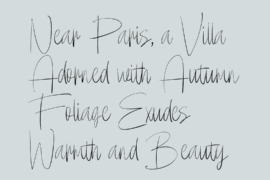 Near Paris, a Villa
Adorned with Autumn
Foliage Exudes
Warmth and Beauty